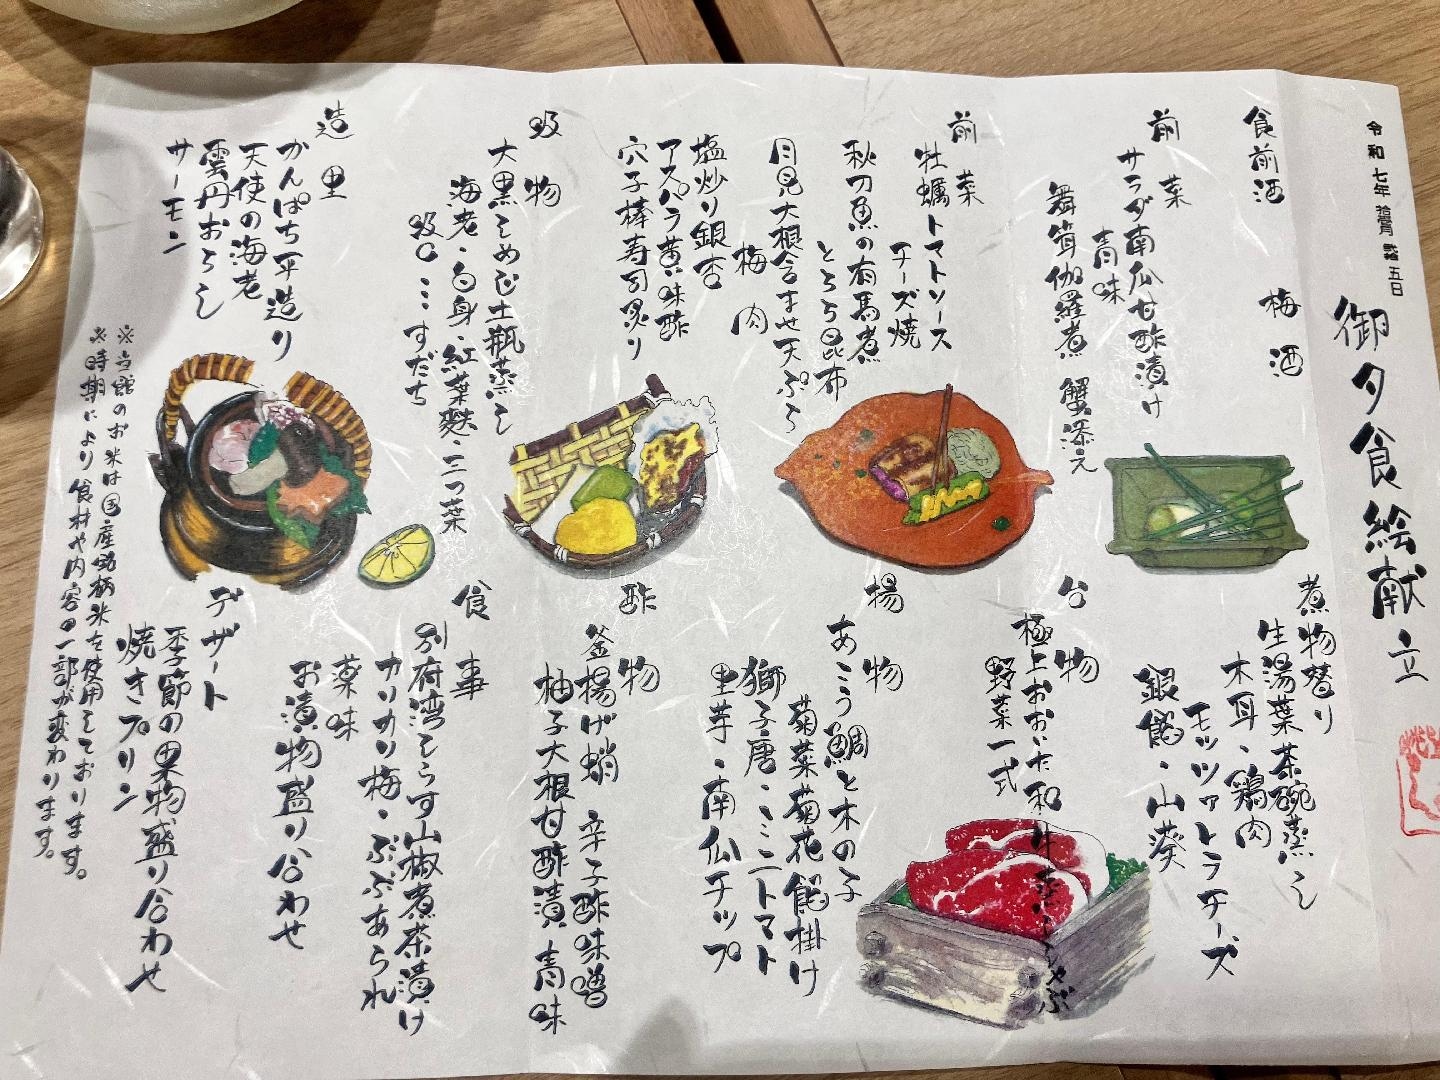 御夕食絵献立
令和七年拾月 五日
食前酒
梅酒
前菜
サラダ南瓜甘酢漬け
青味
舞茸伽羅煮 蟹添え
前菜
牡蠣トマトソース
チーズ焼
秋刀魚の有馬煮
とろろ昆布
月見大根含ませ天ぷら
梅肉
塩炒り銀杏
アスパラ黄味酢
穴子棒寿司炙り
吸物
大黒しめじ土瓶蒸し
海老・白身・紅葉麩・三つ葉
吸口…すだち
造里
かんぱち平造り
天使の海老
雲丹おろし
サーモン
煮物替り
生湯葉茶碗蒸し
木耳・鶏肉
モッツァレラチーズ
銀餡・山葵
台物
極上おおいた和牛蒸ししゃぶ
野菜一式
揚物
あこう鯛と木の子
菊菜菊花餡掛け
獅子唐・ミニトマト
里芋・南瓜チップ
酢物
釜揚げ蛸 辛子酢味噌
柚子大根甘酢漬 青味
食事
別府湾しらす山椒煮茶漬け
カリカリ梅・ぶぶあられ
薬味
お漬物盛り合わせ
デザート
季節の果物盛り合わせ
焼きプリン
※当館のお米は国産銘柄米を使用しております。
※時期により食材や内容の一部が変わります。